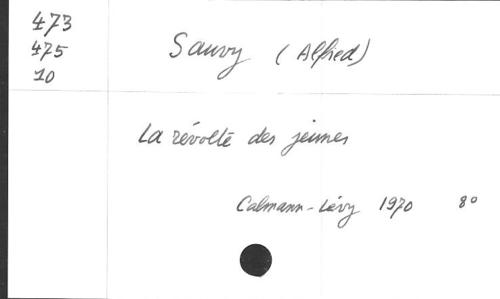 473
475
10
Sauvy (Alfred)
La révolte des jeunes
Calmann-Lévy 1970 8°